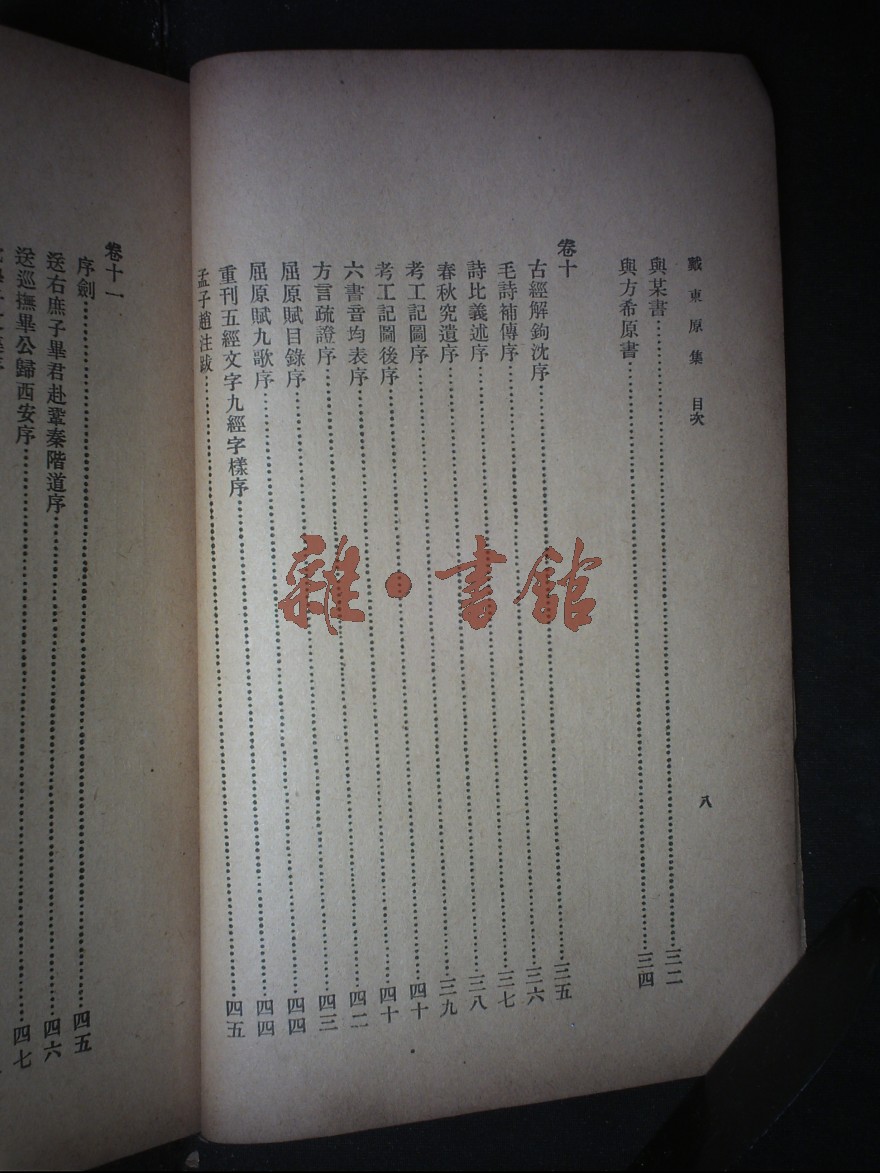 戴東原集 目次 八
與某書……三二
與方希原書……三四
卷十
古經解鉤沈序……三五
毛詩補傳序……三六
詩比義述序……三七
春秋究遺序……三八
考工記圖序……三九
考工記圖後序……四十
六書音均表序……四十
方言疏證序……四二
屈原賦目錄序……四三
屈原賦九歌序……四四
重刊五經文字九經字樣序……四四
孟子趙注跋……四五
卷十一
序劍……四五
送右庶子畢君赴鞏秦階道序……四六
送巡撫畢公歸西安序……四七
雜·書館